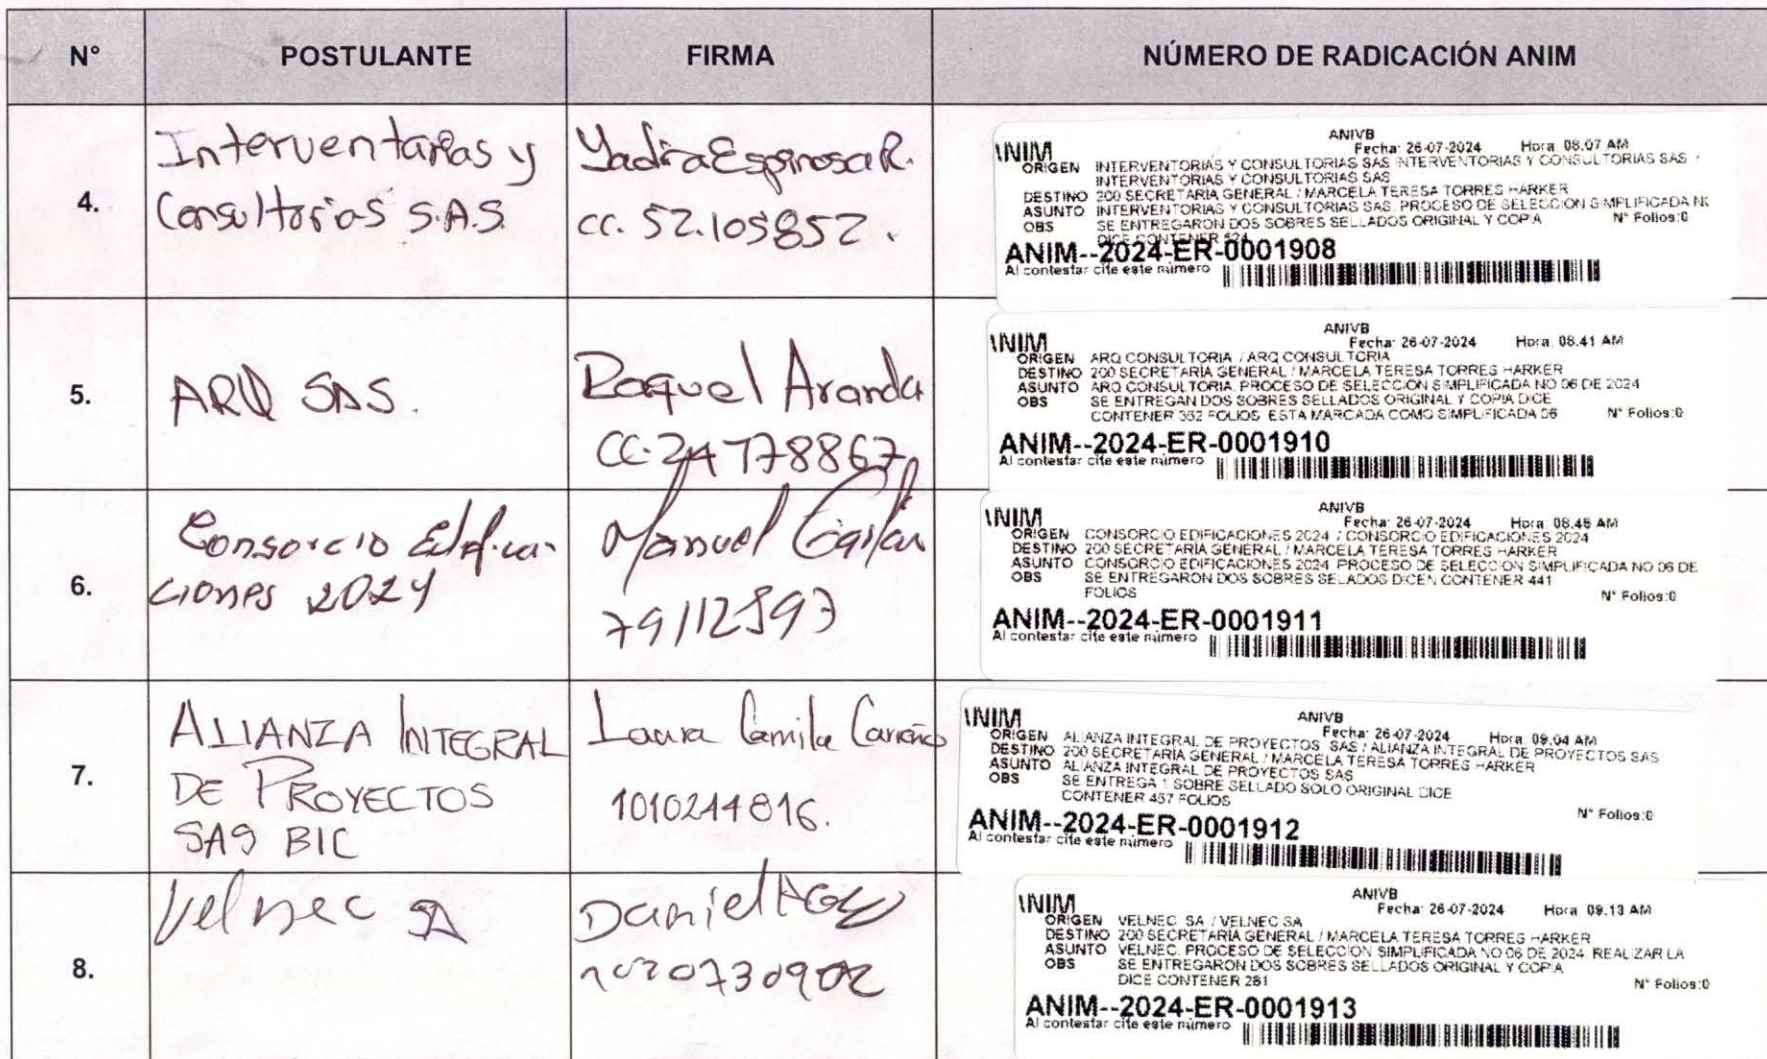 N° POSTULANTE FIRMA NÚMERO DE RADICACIÓN ANIM
4.
Interventarias y
Consultorias S.A.S
Yadira Espinosa R.
CC. 52.105852.
ANIVB
ANIM Fecha: 26-07-2024 Hora: 08.07 AM
ORIGEN INTERVENTORIAS Y CONSULTORIAS SAS INTERVENTORIAS Y CONSULTORIAS SAS /
INTERVENTORIAS Y CONSULTORIAS SAS
DESTINO 200 SECRETARIA GENERAL / MARCELA TERESA TORRES HARKER
ASUNTO INTERVENTORIAS Y CONSULTORIAS SAS. PROCESO DE SELECCION SIMPLIFICADA NO
OBS SE ENTREGARON DOS SOBRES SELLADOS ORIGINAL Y COPIA N° Folios:0
DICE CONTENER 524
ANIM--2024-ER-0001908
Al contestar cite este número
5.
ARQ SAS.
Raquel Aranda
CC. 24178867
ANIVB
ANIM Fecha: 26-07-2024 Hora: 08.41 AM
ORIGEN ARQ CONSULTORIA / ARQ CONSULTORIA
DESTINO 200 SECRETARIA GENERAL / MARCELA TERESA TORRES HARKER
ASUNTO ARQ CONSULTORIA. PROCESO DE SELECCION SIMPLIFICADA NO 06 DE 2024
OBS SE ENTREGAN DOS SOBRES SELLADOS ORIGINAL Y COPIA DICE
CONTENER 352 FOLIOS ESTA MARCADA COMO SIMPLIFICADA 06 N° Folios:0
ANIM--2024-ER-0001910
Al contestar cite este número
6.
Consorcio Edifica-
ciones 2024
Manuel
79112893
ANIVB
ANIM Fecha: 26-07-2024 Hora: 08.45 AM
ORIGEN CONSORCIO EDIFICACIONES 2024 / CONSORCIO EDIFICACIONES 2024
DESTINO 200 SECRETARIA GENERAL / MARCELA TERESA TORRES HARKER
ASUNTO CONSORCIO EDIFICACIONES 2024 PROCESO DE SELECCION SIMPLIFICADA NO 06 DE
OBS SE ENTREGARON DOS SOBRES SELADOS DICEN CONTENER 441
FOLIOS N° Folios:0
ANIM--2024-ER-0001911
Al contestar cite este número
7.
ALIANZA INTEGRAL
DE PROYECTOS
SAS BIC
Laura Camila Careño
1010244816.
ANIVB
ANIM Fecha: 26-07-2024 Hora: 09.04 AM
ORIGEN ALIANZA INTEGRAL DE PROYECTOS SAS / ALIANZA INTEGRAL DE PROYECTOS SAS
DESTINO 200 SECRETARIA GENERAL / MARCELA TERESA TORRES HARKER
ASUNTO ALIANZA INTEGRAL DE PROYECTOS SAS
OBS SE ENTREGA 1 SOBRE SELLADO SOLO ORIGINAL DICE
CONTENER 457 FOLIOS N° Folios:0
ANIM--2024-ER-0001912
Al contestar cite este número
8.
Velnec SA
Daniel
1020730902
ANIVB
ANIM Fecha: 26-07-2024 Hora: 09.13 AM
ORIGEN VELNEC SA / VELNEC SA
DESTINO 200 SECRETARIA GENERAL / MARCELA TERESA TORRES HARKER
ASUNTO VELNEC. PROCESO DE SELECCION SIMPLIFICADA NO 06 DE 2024 REALIZAR LA
OBS SE ENTREGARON DOS SOBRES SELLADOS ORIGINAL Y COPIA
DICE CONTENER 281 N° Folios:0
ANIM--2024-ER-0001913
Al contestar cite este número